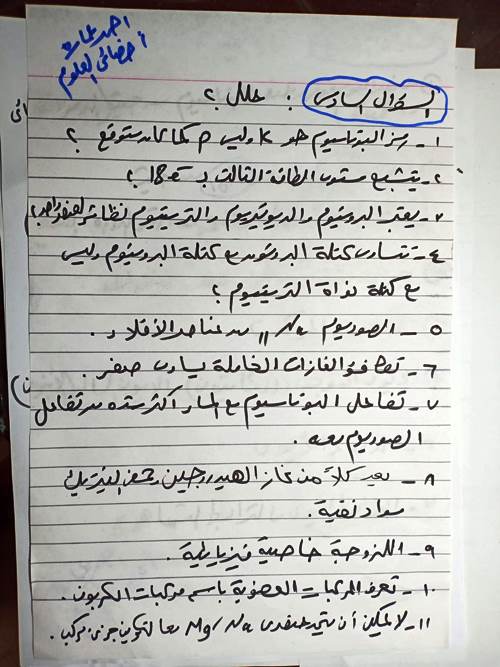 احمد عمار
أخصائي العلوم
السؤال السادس : علل ؟
١- رمز البوتاسيوم هو K وليس P كما كان متوقع ؟
٢- يتشبع مستوى الطاقة الثالث بـ 18e ؟
٣- يعتبر البروتيوم والديوتيريوم والتريتيوم نظائر لعنصر واحد ؟
٤- تتساوى كتلة البروتون مع كتلة البروتيوم وليس
مع كتلة نواة التريتيوم ؟
٥- الصوديوم 11Na من عناصر الأقلاء .
٦- تكافؤ الغازات الخاملة يساوى صفر .
٧- تفاعل البوتاسيوم مع الماء أكثر شده من تفاعل
الصوديوم معه .
٨- يعد كلاً من غاز الهيدروجين وحمض النيتريك
مواد نقية .
٩- اللزوجة خاصية فيزيائية .
١٠- تعرف المركبات العضوية باسم مركبات الكربون .
١١- لا يمكن أن يتحد عنصرى Na و Mg معا لتكوين جزئ مركب .